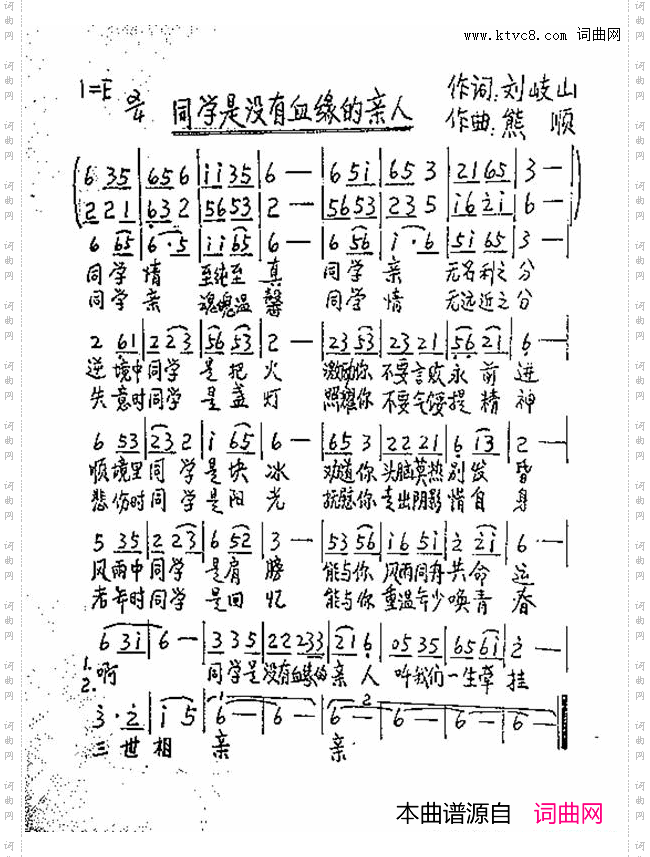 www.ktvc8.com 词曲网
1=E 2/4 同学是没有血缘的亲人 作词:刘岐山
作曲:熊 顺
6 35 | 65 6 | ii 35 | 6 — | 6 5i | 65 3 | 21 65 | 3 —
22 1 | 63 2 | 56 53 | 2 — | 56 53 | 23 5 | i6 2i | 6 —
6 65 | 6·5 | ii 65 | 6 — | 6 56 | i·6 | 5i 65 | 3 —
同学 情 至纯至 真 同学 亲 无名利之 分
同学 亲 魂魄温 馨 同学 情 无远近之 分
2 61 | 2 23 | 56 53 | 2 — | 23 53 | 23 21 | 56 21 | 6 —
逆 境中 同学 是 把 火 激励你 不要言败 永 前 进
失 意时 同学 是 盏 灯 照耀你 不要气馁 提 精 神
6 53 | 23 2 | i 65 | 6 — | 65 3 | 22 21 | 6 13 | 2 —
顺 境里 同 学 是 块 冰 劝道你 头脑莫热 别 发 昏
悲 伤时 同 学 是 阳 光 抚慰你 走出阴影 惜 自 身
5 35 | 2 23 | 6 52 | 3 — | 53 56 | i6 5i | 2 2i | 6 —
风 雨中 同学 是 肩 膀 能与你 风雨同舟 共 命 运
老 年时 同学 是 回 忆 能与你 重温年少 唤 青 春
6 3i | 6 — | 3 35 | 22 233 | 21 6 | 05 35 | 65 6i | 2 —
1. 啊 同学是 没有血缘的 亲 人 叫我们 一生牵 挂
2.
3·2 | i 5 | 6 — | 6 — | 6 — | 6 — | 6 — | 6 —
三 世 相 亲 亲
本曲谱源自 词曲网
词曲网